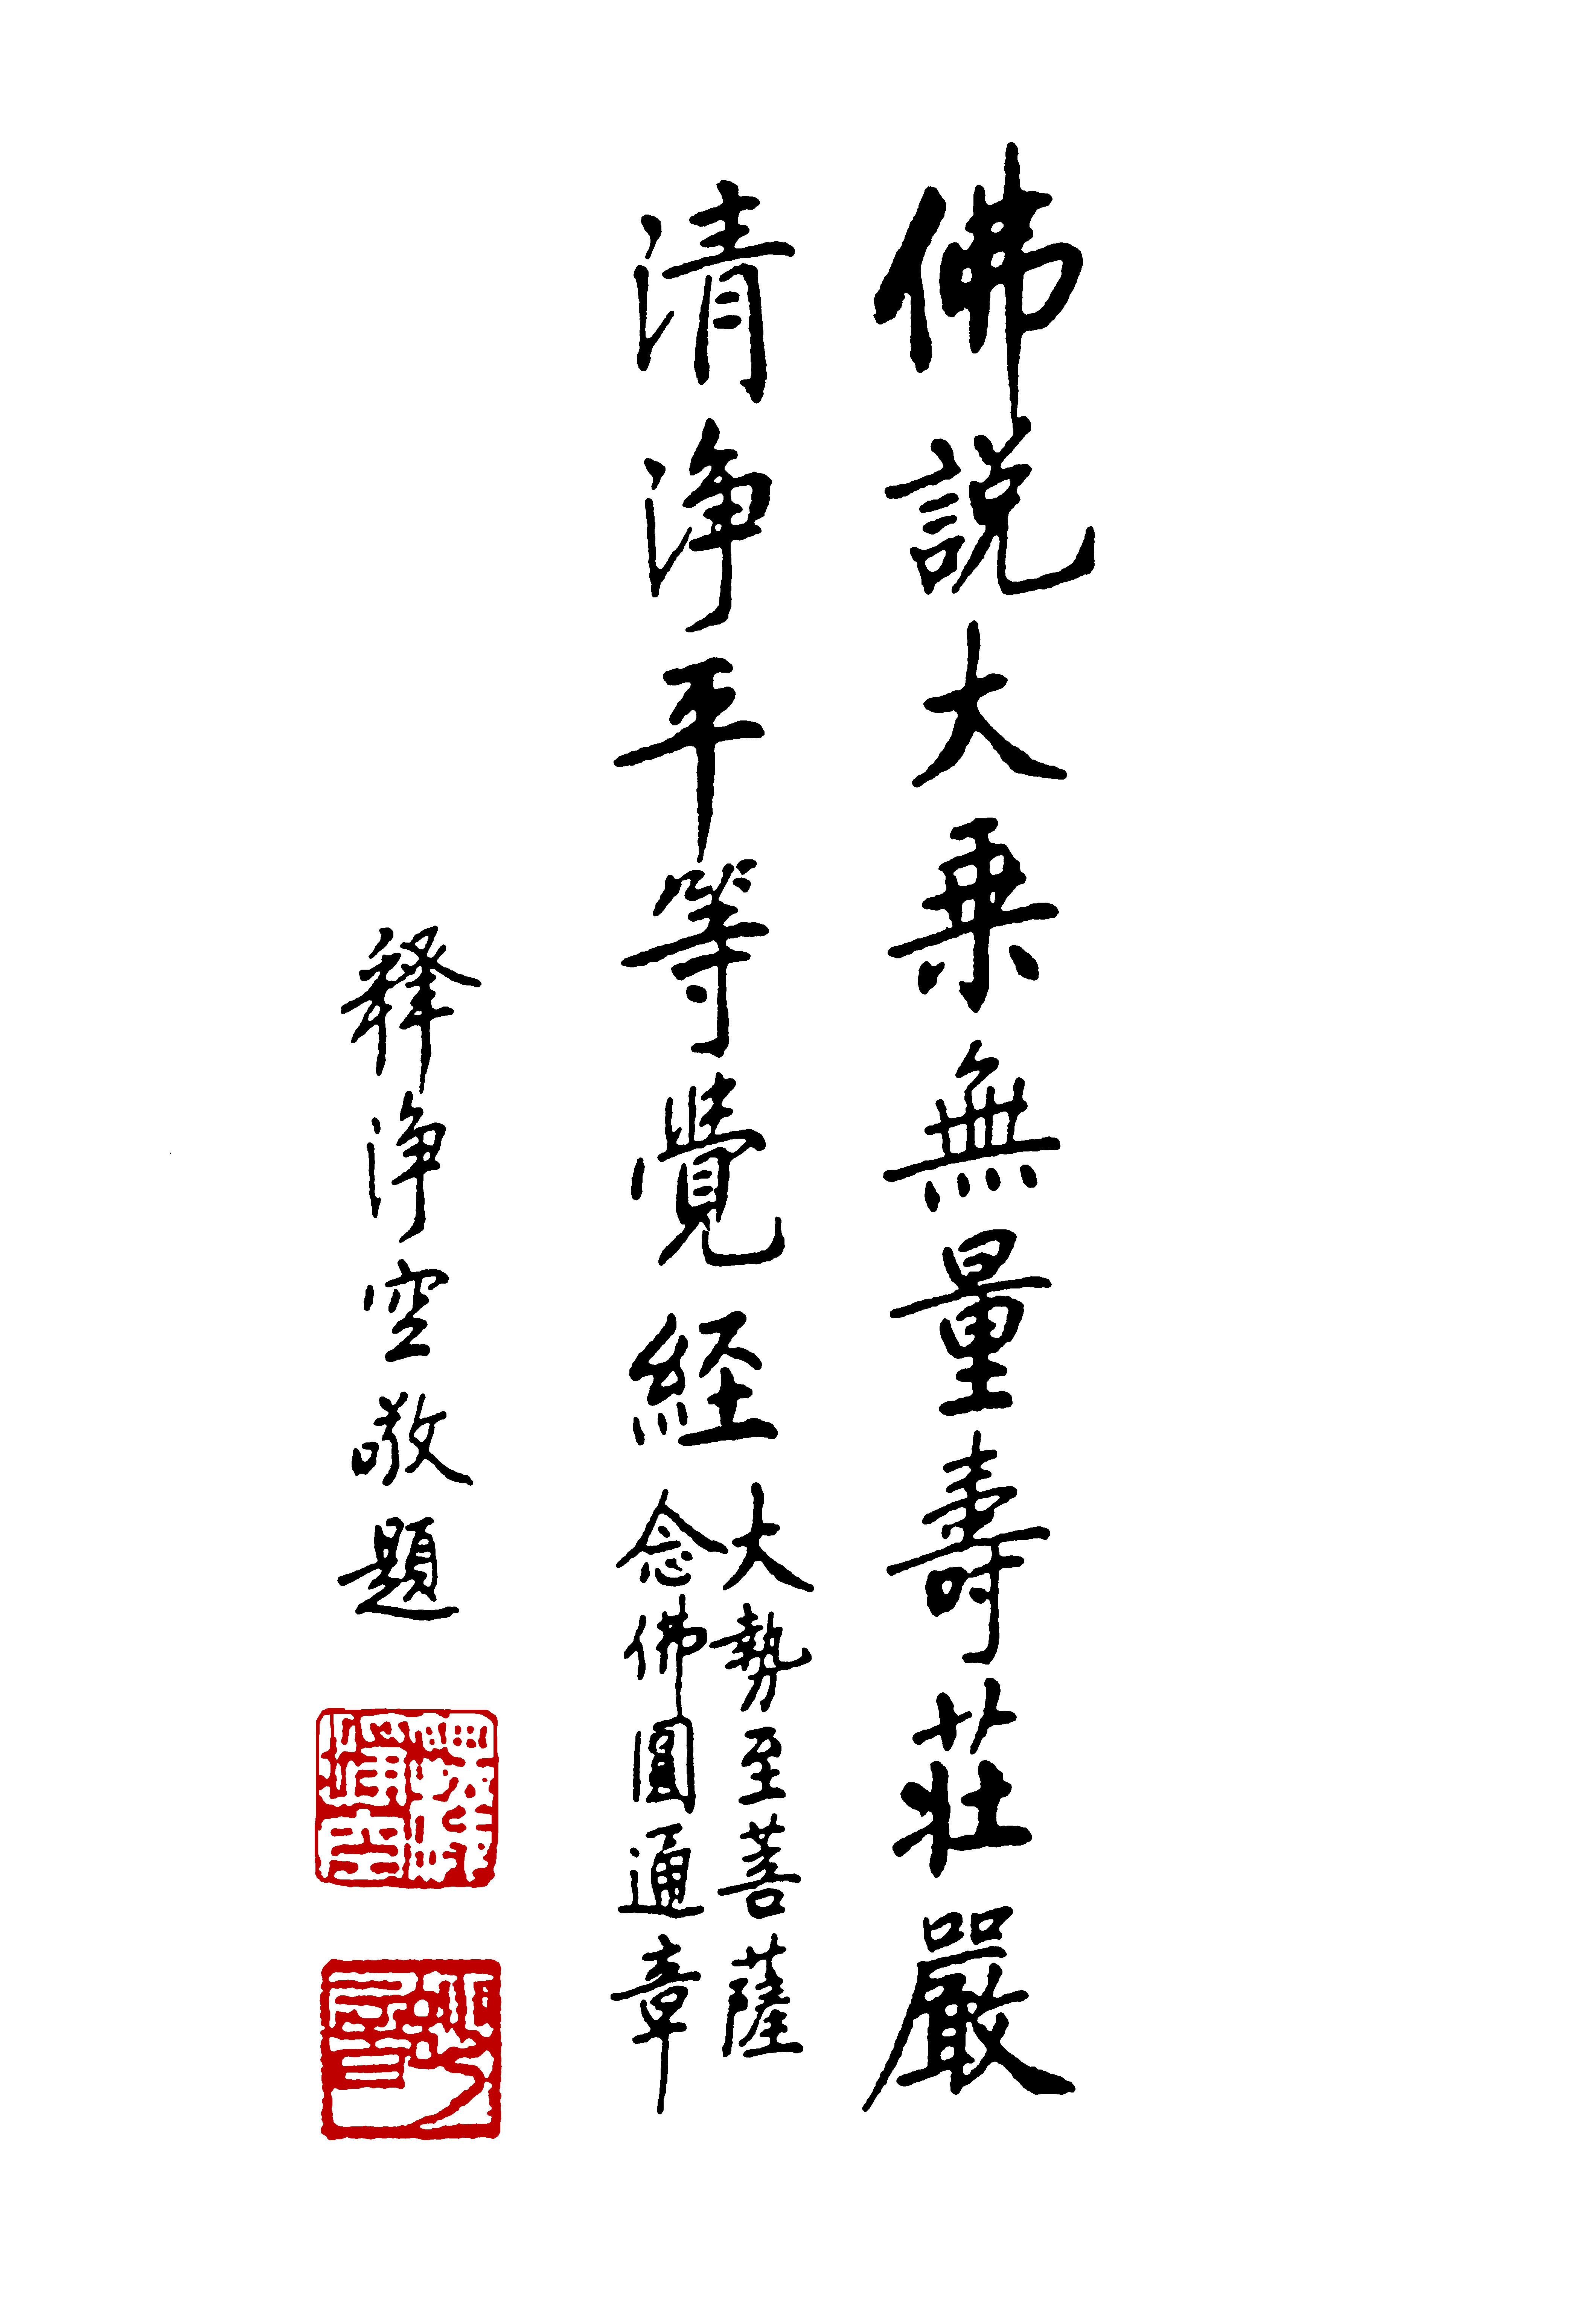 佛説大乘無量壽莊嚴
清淨平等覺經
大勢至菩薩
念佛圓通章
釋淨空敬題